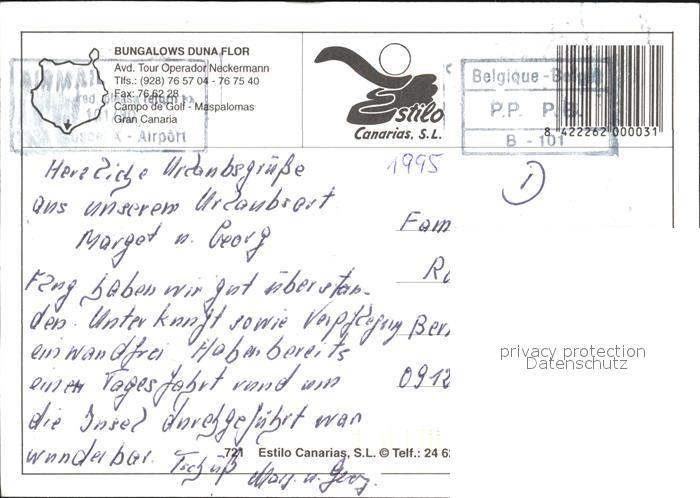 BUNGALOWS DUNA FLOR
Avd. Tour Operador Neckermann
Tlfs.: (928) 76 57 04 - 76 75 40
Fax: 76 62 28
Campo de Golf - Maspalomas
Gran Canaria
Estilo
Canarias, S.L.
Belgique - België
P.P. P.B.
B - 101
8 422262 000031
- Airport
1995
1)
Herzliche Urlaubsgrüße
aus unserem Urlaubsort
Margot u. Georg
Flug haben wir gut überstan-
den. Unterkunft sowie Verpflegung
einwandfrei Haben bereits
einen Tagesfahrt rund um
die Insel durchgeführt war
wunderbar. Tschüß Marg. u. Georg.
Fam
Ber
0912
privacy protection
Datenschutz
721 Estilo Canarias, S.L. © Telf.: 24 62